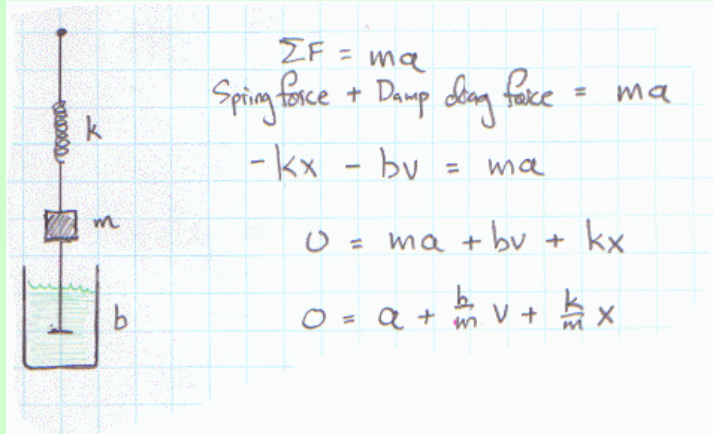 ΣF = ma
Spring force + Damp drag force = ma
k
-kx - bv = ma
m
0 = ma + bv + kx
b
0 = a + b/m v + k/m x